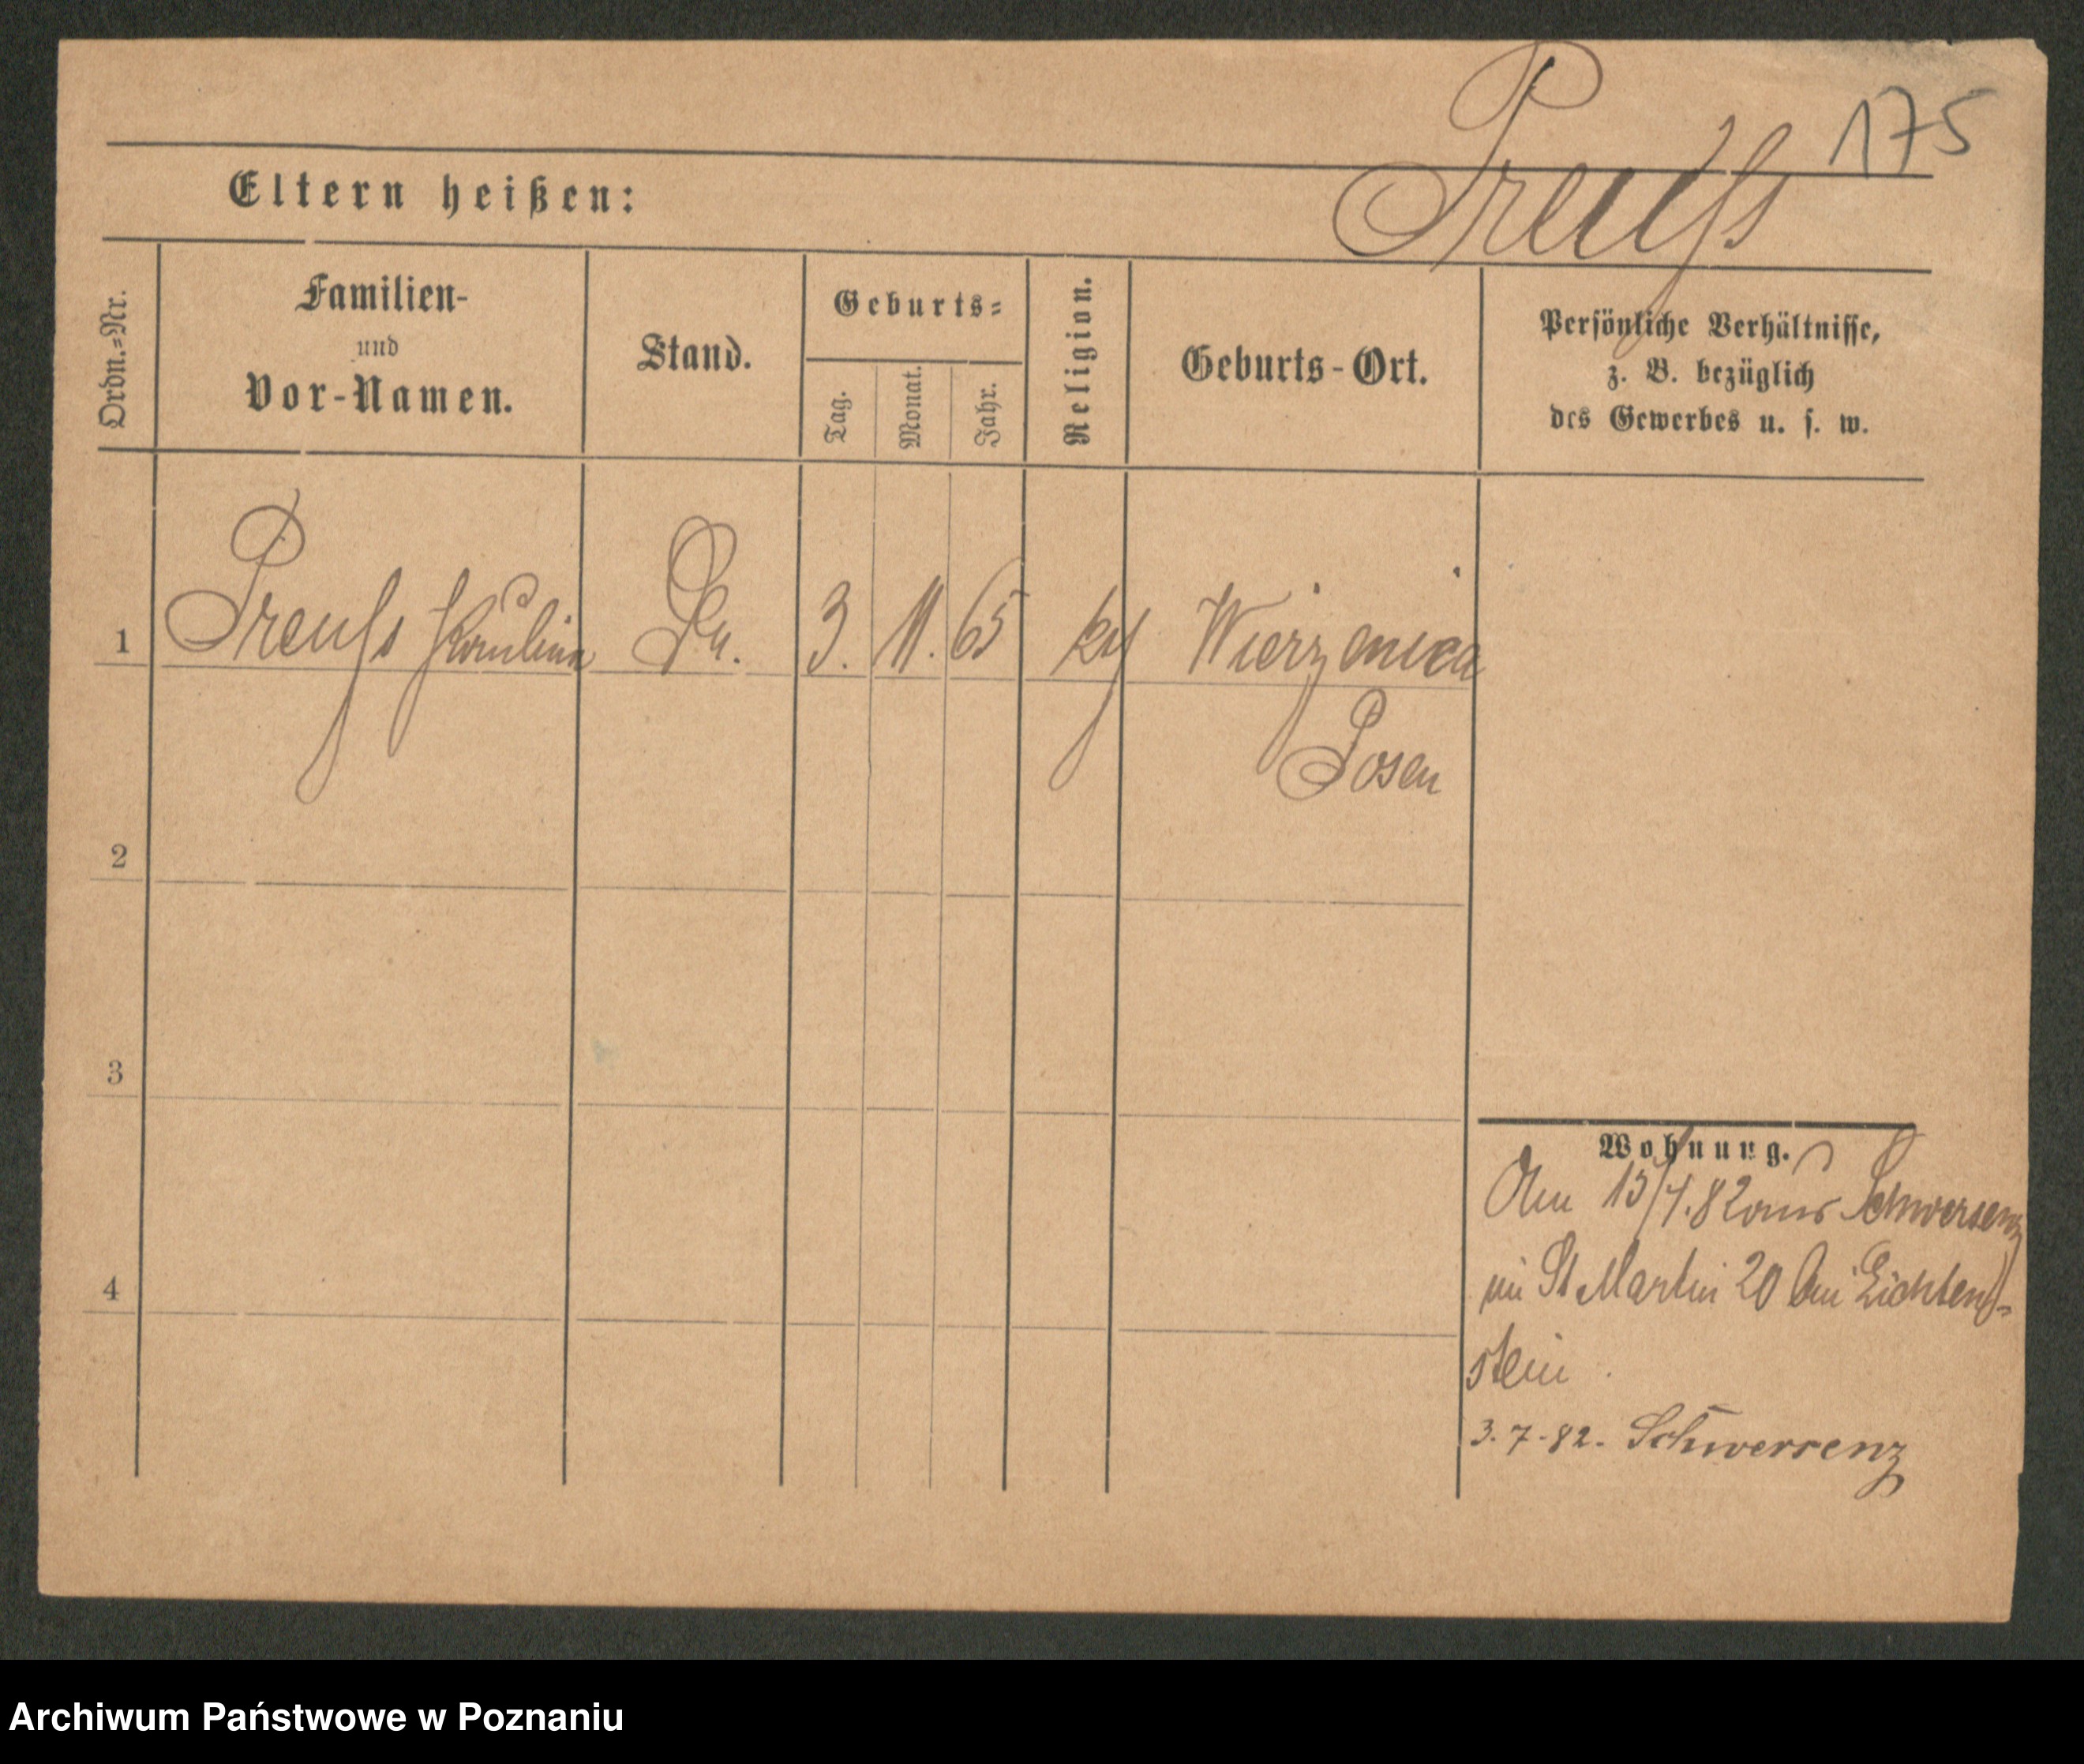 175
Preuſs
Eltern heißen:
Ordn.-Nr.
Familien-
und
Vor-Namen.
Stand.
Geburts-
Tag.
Monat.
Jahr.
Religion.
Geburts-Ort.
Persönliche Verhältnisse,
z. B. bezüglich
des Gewerbes u. s. w.
1
Preuſs
3. 11. 65
Wierzenica
Posen
2
3
4
Wohnung.
Am 15/4.82 aus Schwersenz
St Martin 20 bei Lichten-
stein
3.7.82. Schwersenz
Archiwum Państwowe w Poznaniu